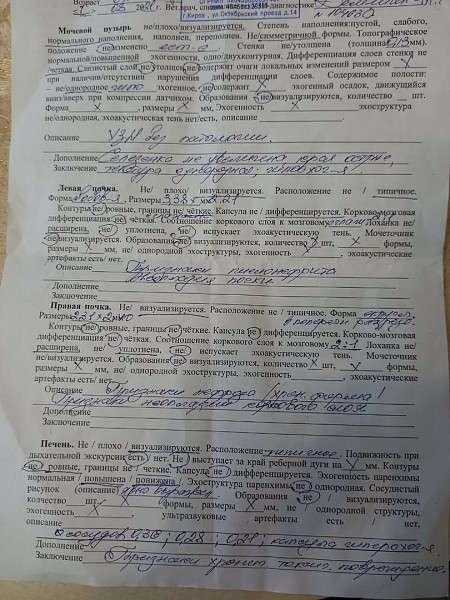 Возраст
г. Киров, ул.Октябрьский проезд д.14
Мочевой пузырь не/плохо/визуализируется. Степень наполнения:пустой, слабого,
нормального наполнения, наполнен, переполнен. Не/симметричной формы. Топографическое
положение не изменено Стенка не/утолщена мм).
нормальной/повышенной эхогенности, одно/двухконтурная. Дифференциация слоев стенки не
/четкая. Слизистый слой не утолщен, не содержит очаги локальных изменений размером
при наличии/отсутствии нарушения дифференциации слоев. Содержимое полости:
– не/однородное эхогенное, не содержит эхогенный осадок, движущийся
вниз/вверх при компрессии датчиком. Образования не визуализируются, количество шт.
Форма X размеры X мм, Эхогенность X эхоструктура
не/однородная, эхоакустическая тень нет/есть, описание
Описание УЗИ без патологии.
Дополнение Селезенка не увеличена, края острые,
Заключение
Левая почка. Не/ плохо/ визуализируется. Расположение не / типичное.
Форма Размеры 3,38 х 2,21
Контуры не ровные, границы не/ чёткие. Капсула не / дифференцируется. Корково-мозговая
дифференциация не/ чёткая. Соотношение коркового слоя к мозговому Лоханка не/
расширена, не/ уплотнена, не/ испускает эхоакустическую тень. Мочеточник
не визуализируется. Образования не визуализируются, количество X шт, X формы,
размеры X мм, не/ однородной эхоструктуры, эхогенность X, эхоакустические
артефакты есть/ нет.
Описание Признаки пиелонефрита
Дополнение
Заключение
Правая почка. Не/ визуализируется. Расположение не / типичное. Форма
Размеры
Контуры не ровные, границы не/ чёткие. Капсула не дифференцируется. Корково-мозговая
дифференциация не/ чёткая. Соотношение коркового слоя к мозговому 2:1 Лоханка не/
расширена, не уплотнена, не/ испускает эхоакустическую тень. Мочеточник
не/визуализируется. Образования не визуализируются, количество X шт, X формы,
размеры X мм, не/ однородной эхоструктуры, эхогенность X, эхоакустические
артефакты есть/ нет
Описание Признаки
Признаки коркового слоя
Дополнение
Заключение
Печень. Не / плохо / визуализируются. Расположение типичное. Подвижность при
дыхательной экскурсии есть/ нет. Не выступает за край реберной дуги на мм. Контуры
не ровные, границы не / четкие. Капсула не дифференцируется. Эхогенность паренхимы
нормальная / повышена / понижена. Эхоструктура паренхимы не однородная. Сосудистый
рисунок (описание) Образования не / визуализируются,
количество шт, X формы, размеры X мм, не / однородной структуры,
эхогенность X, ультразвуковые артефакты есть / нет,
описание
сосудов 0,36; 0,28; 0,21; капсула
Дополнение
Заключение Признаки хронич. токсич. повреждения.